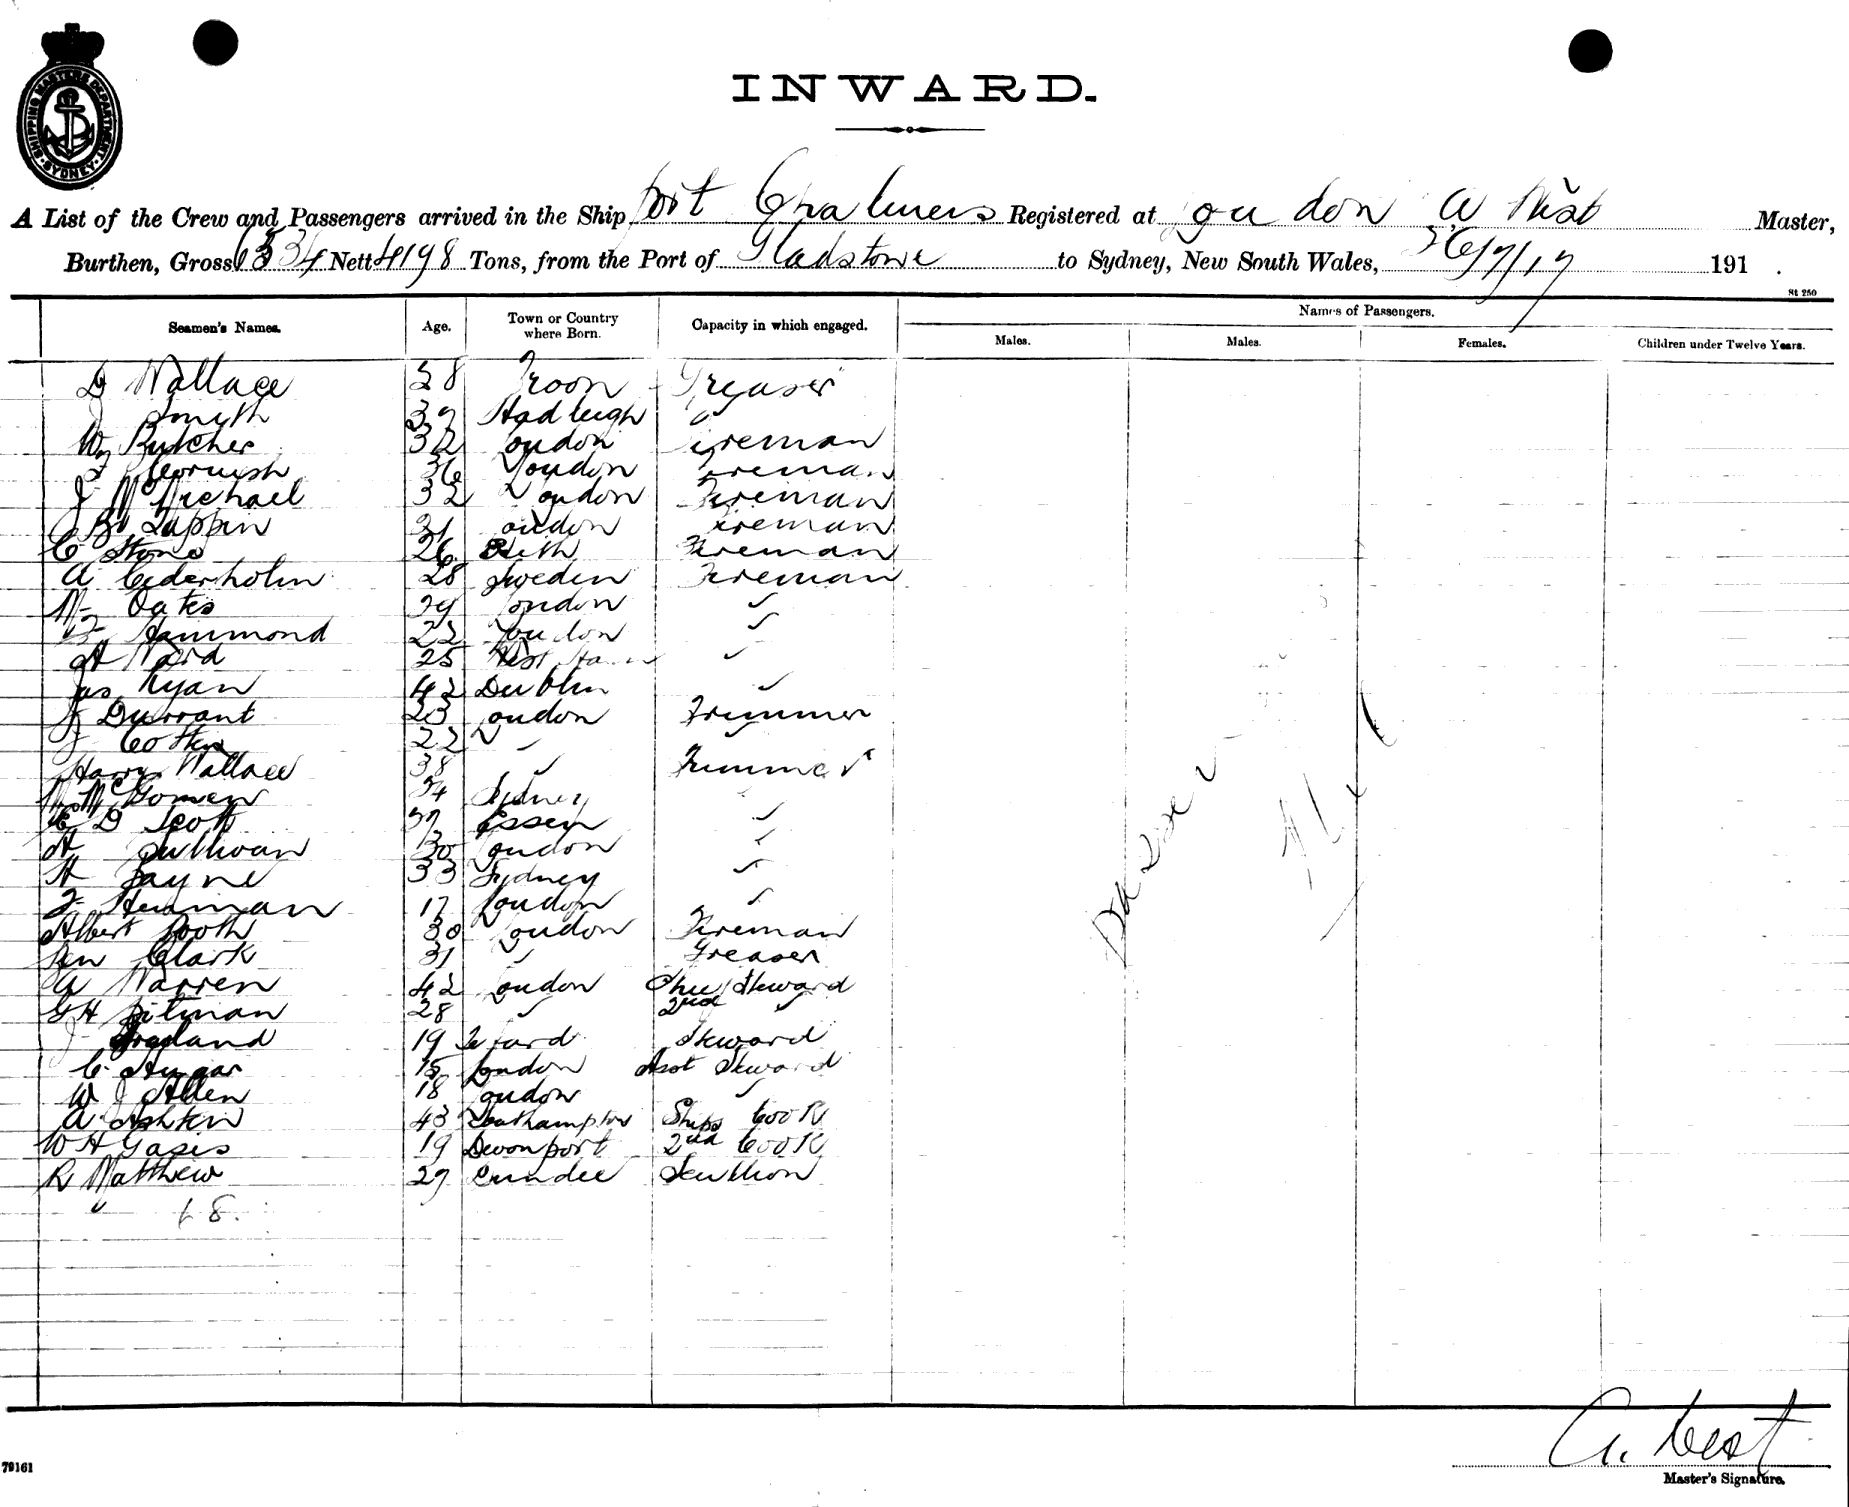 SHIPPING MASTERS DEPARTMENT SYDNEY
INWARD.
A List of the Crew and Passengers arrived in the Ship Port Chalmers Registered at London A West Master,
Burthen, Gross 6534 Nett 4198 Tons, from the Port of Gladstone to Sydney, New South Wales, 26/7/17 191 .
St 250
Seamen's Names. Age. Town or Country where Born. Capacity in which engaged. Names of Passengers.
Males. Males. Females. Children under Twelve Years.
D Wallace 28 Troon Greaser
J Smyth 39 Hadleigh "
Wm Butcher 32 London Fireman
Cornish 36 London Fireman
J McMichael 32 London Fireman
Tappin 31 London Fireman
C Stone 26 Fireman
A Cederholm 28 Sweden Fireman
Wm Oates 29 London ✓
F Hammond 22 London ✓
H Ward 25 West Ham ✓
Jas Ryan 42 Dublin ✓
J Durrant 23 London Trimmer
J 22 ✓ ✓
Harry Wallace 38 ✓ Trimmer
34 Sydney
D Scott 37 Essex ✓
H Sullivan 30 London ✓
H Payne 33 Sydney ✓
F 17 London ✓
Albert Booth 30 London Fireman
Ben Clark 31 ✓ Greaser
A Warren 42 London Chief Steward
G H Pitman 28 ✓ 2nd ✓
J 19 Steward
C 15 London Asst Steward
W J Allen 18 London ✓
A Ashkin 43 Southampton Ships Cook
W H 19 Devonport 2nd Cook
R Matthew 29 Dundee Scullion
A. West
Master's Signature.
79161